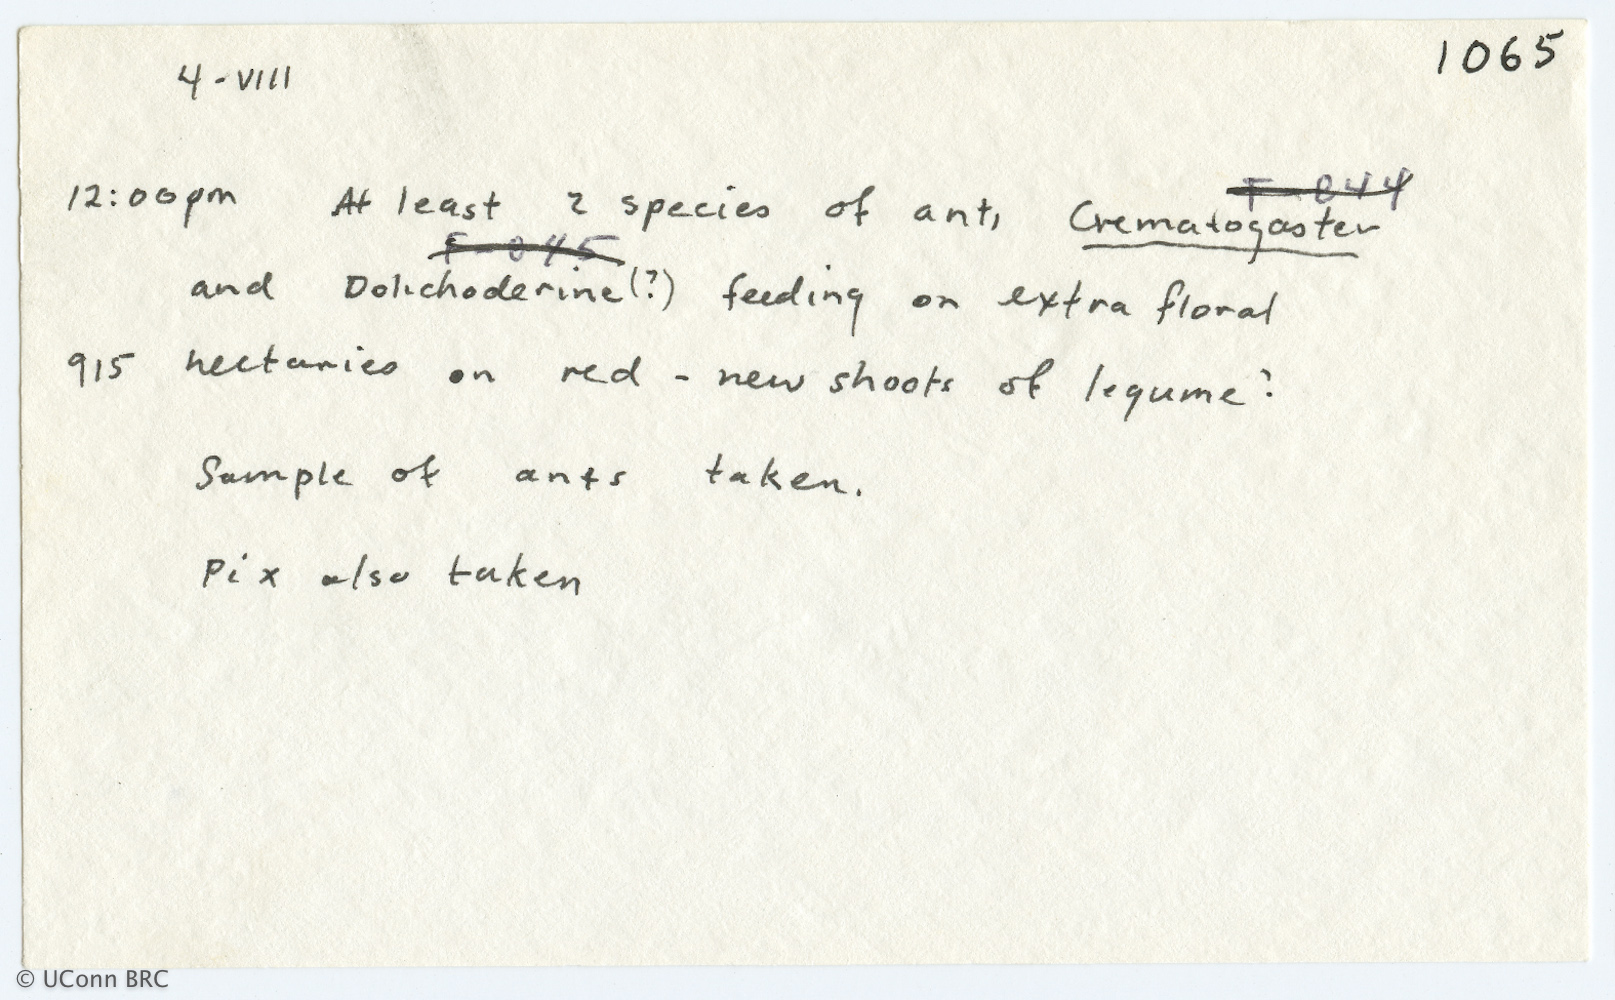 1065
4-VIII
F-044
12:00pm At least 2 species of ant, Crematogaster
F-045
and Dolichoderine(?) feeding on extra floral
915 nectaries on red - new shoots of legume?
Sample of ants taken.
Pix also taken
© UConn BRC